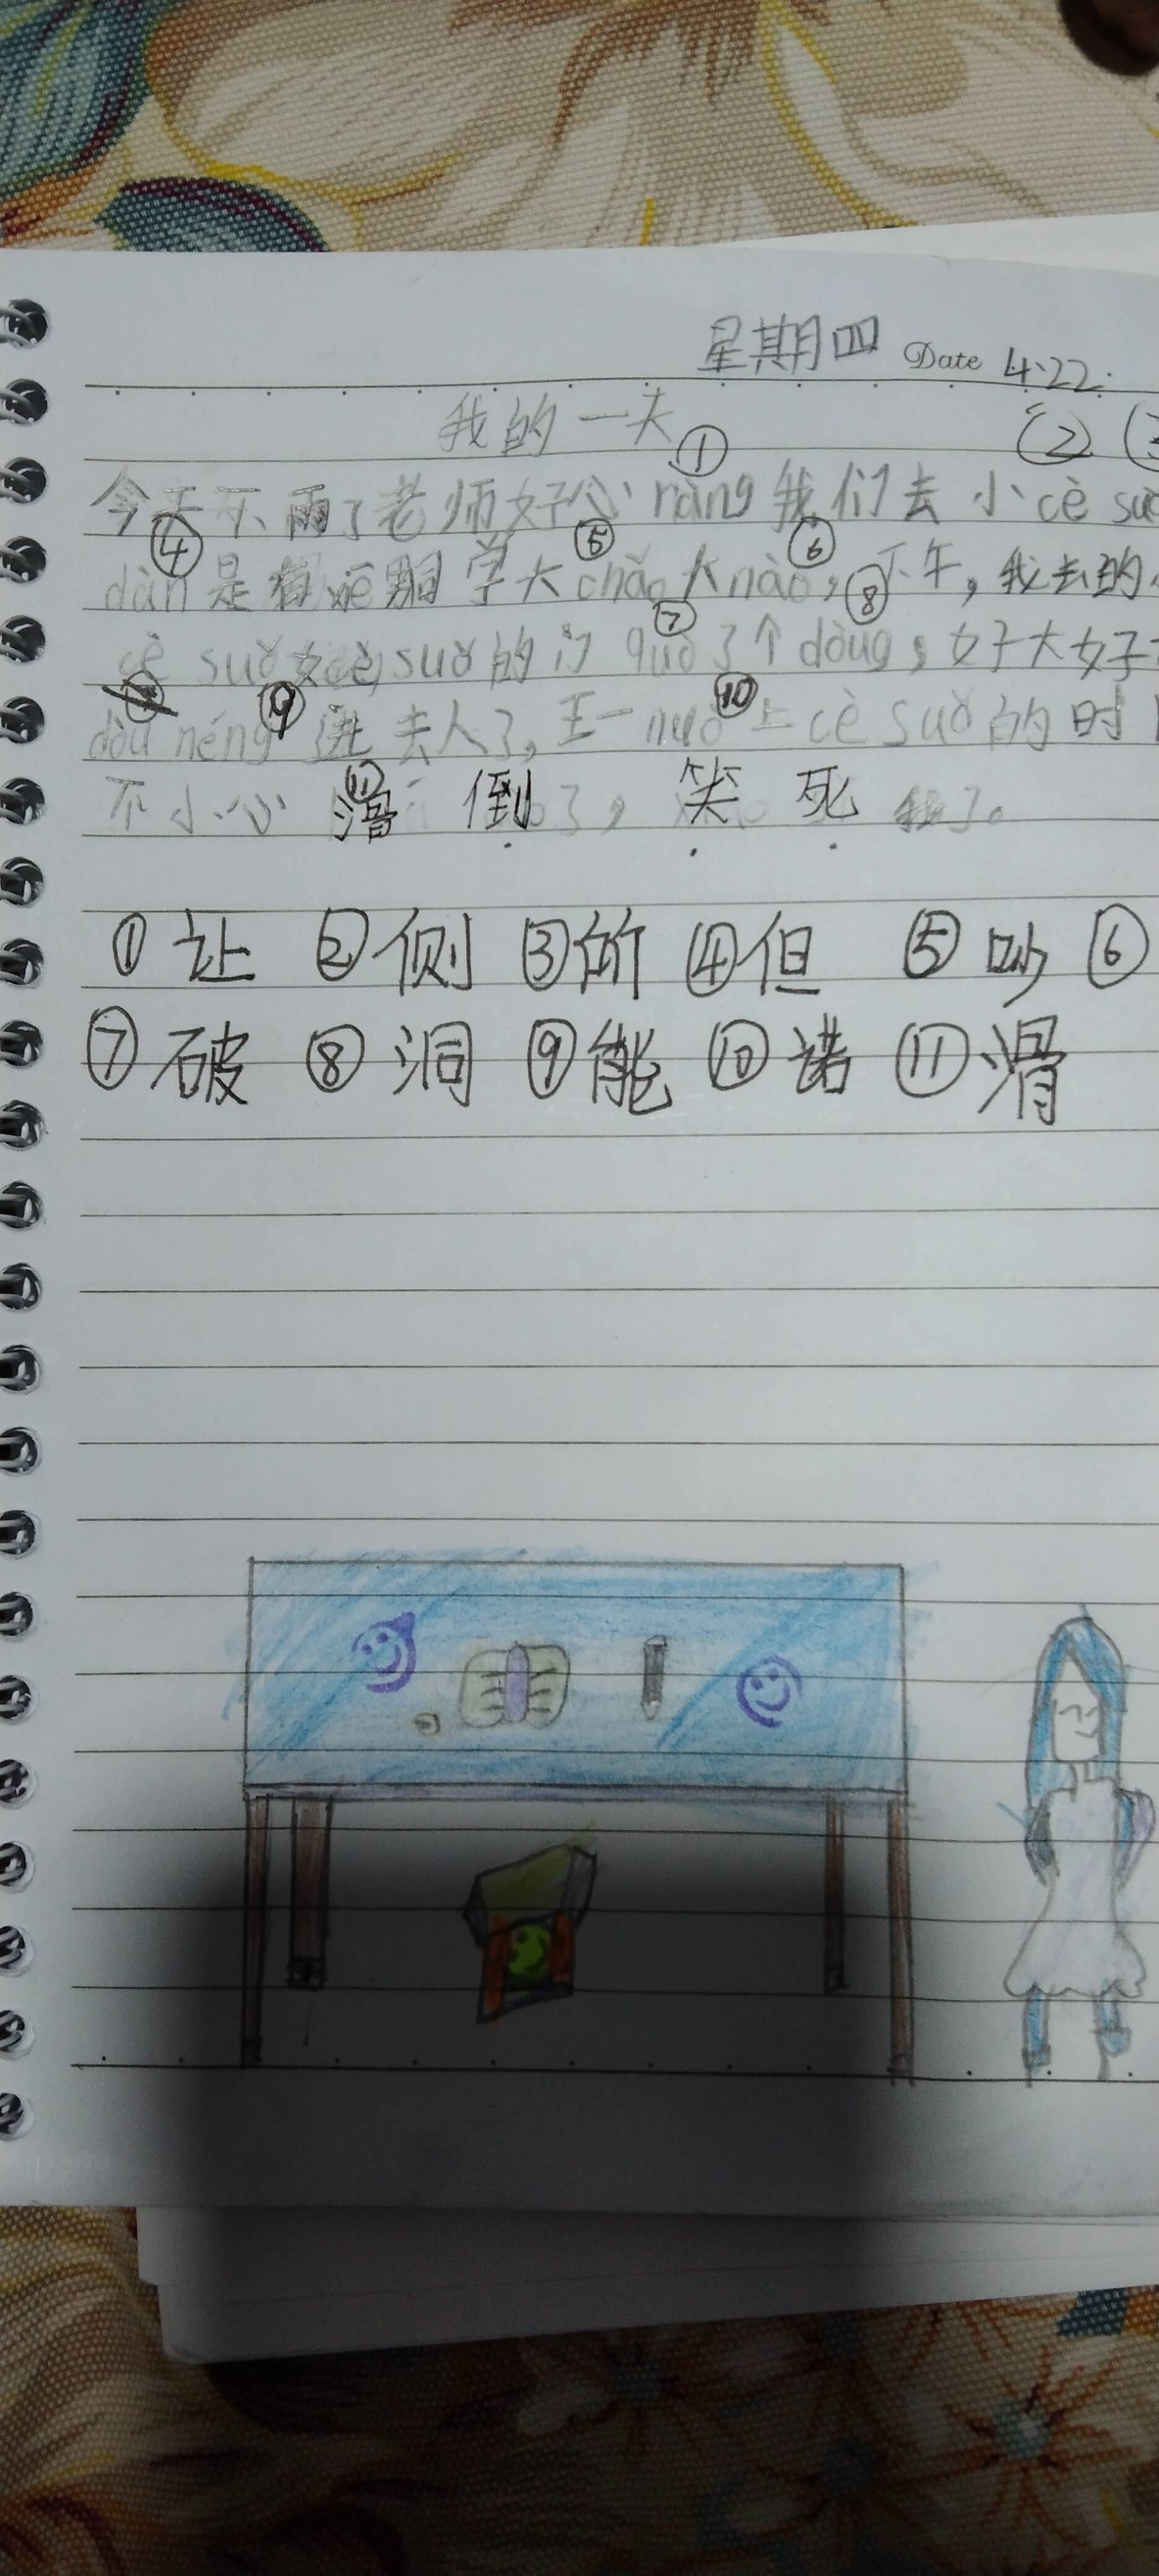 星期四 Date 4.22.
我的一天 ① (2) (3
今天下雨了老师好心 ràng 我们去小 cè suǒ
④ ⑤ ⑥
dàn 是有 同学大 chǎo 大 nào, 下午, 我去的
⑦ ⑧
cè suǒ 女 cè suǒ 的门 了个 dòng, 女子大女子
⑨ ⑩
dōu néng 进去人了, 王一 nuò 上 cè suǒ 的时
⑪
不小心滑倒了, 笑死我了。
①让 ②侧 ③所 ④但 ⑤吵 ⑥
⑦破 ⑧洞 ⑨能 ⑩诺 ⑪滑